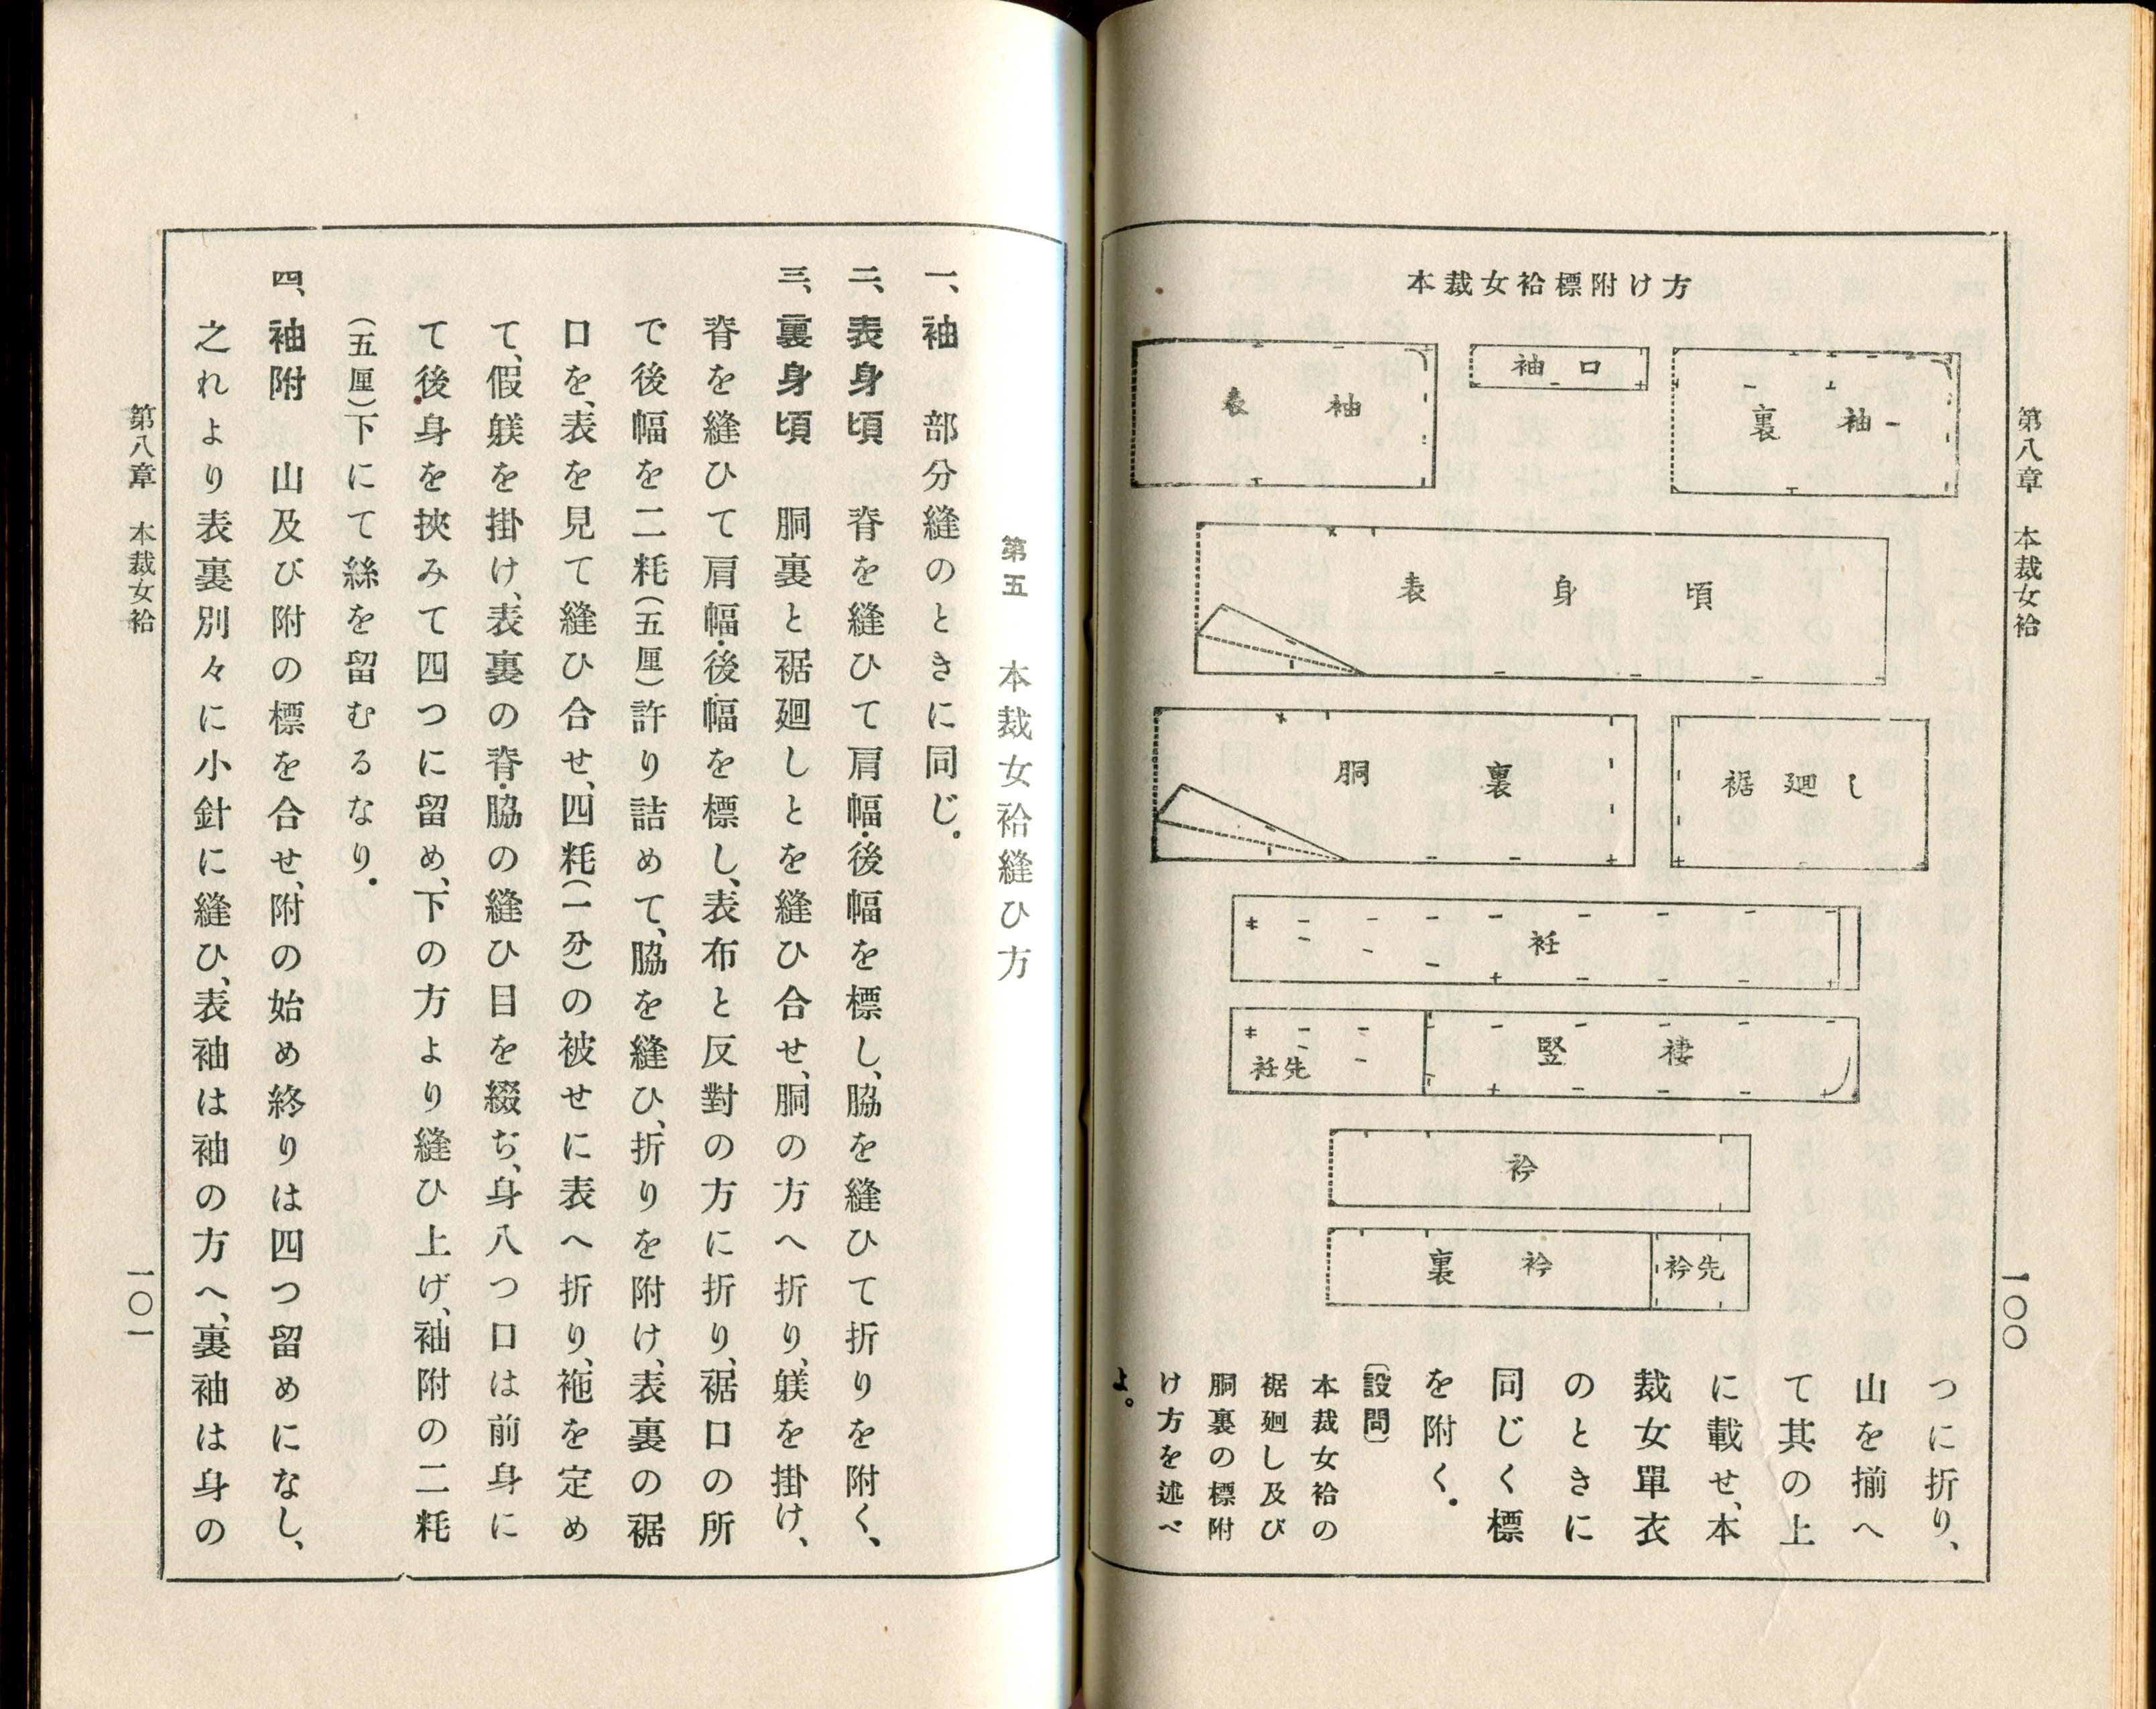 第八章 本裁女袷
一〇〇
本裁女袷標附け方
裏袖
袖口
表袖
表身頃
胴裏
裾廻し
衽
竪褄
衽先
衿
裏衿
衿先
つに折り、
山を揃へ
て其の上
に載せ、本
裁女單衣
のときに
同じく標
を附く。
〔設問〕
本裁女袷の
裾廻し及び
胴裏の標附
け方を述べ
よ。
第五 本裁女袷縫ひ方
一、袖 部分縫のときに同じ。
二、表身頃 脊を縫ひて肩幅・後幅を標し、脇を縫ひて折りを附く、
三、裏身頃 胴裏と裾廻しとを縫ひ合せ、胴の方へ折り、躾を掛け、
脊を縫ひて肩幅・後幅を標し、表布と反對の方に折り、裾口の所
で後幅を二粍(五厘)許り詰めて、脇を縫ひ、折りを附け、表裏の裾
口を、表を見て縫ひ合せ、四粍(一分)の被せに表へ折り、袘を定め
て、假躾を掛け、表裏の脊・脇の縫ひ目を綴ぢ、身八つ口は前身に
て後身を挾みて四つに留め、下の方より縫ひ上げ、袖附の二粍
(五厘)下にて絲を留むるなり。
四、袖附 山及び附の標を合せ、附の始め終りは四つ留めになし、
之れより表裏別々に小針に縫ひ、表袖は袖の方へ、裏袖は身の
第八章 本裁女袷
一〇一